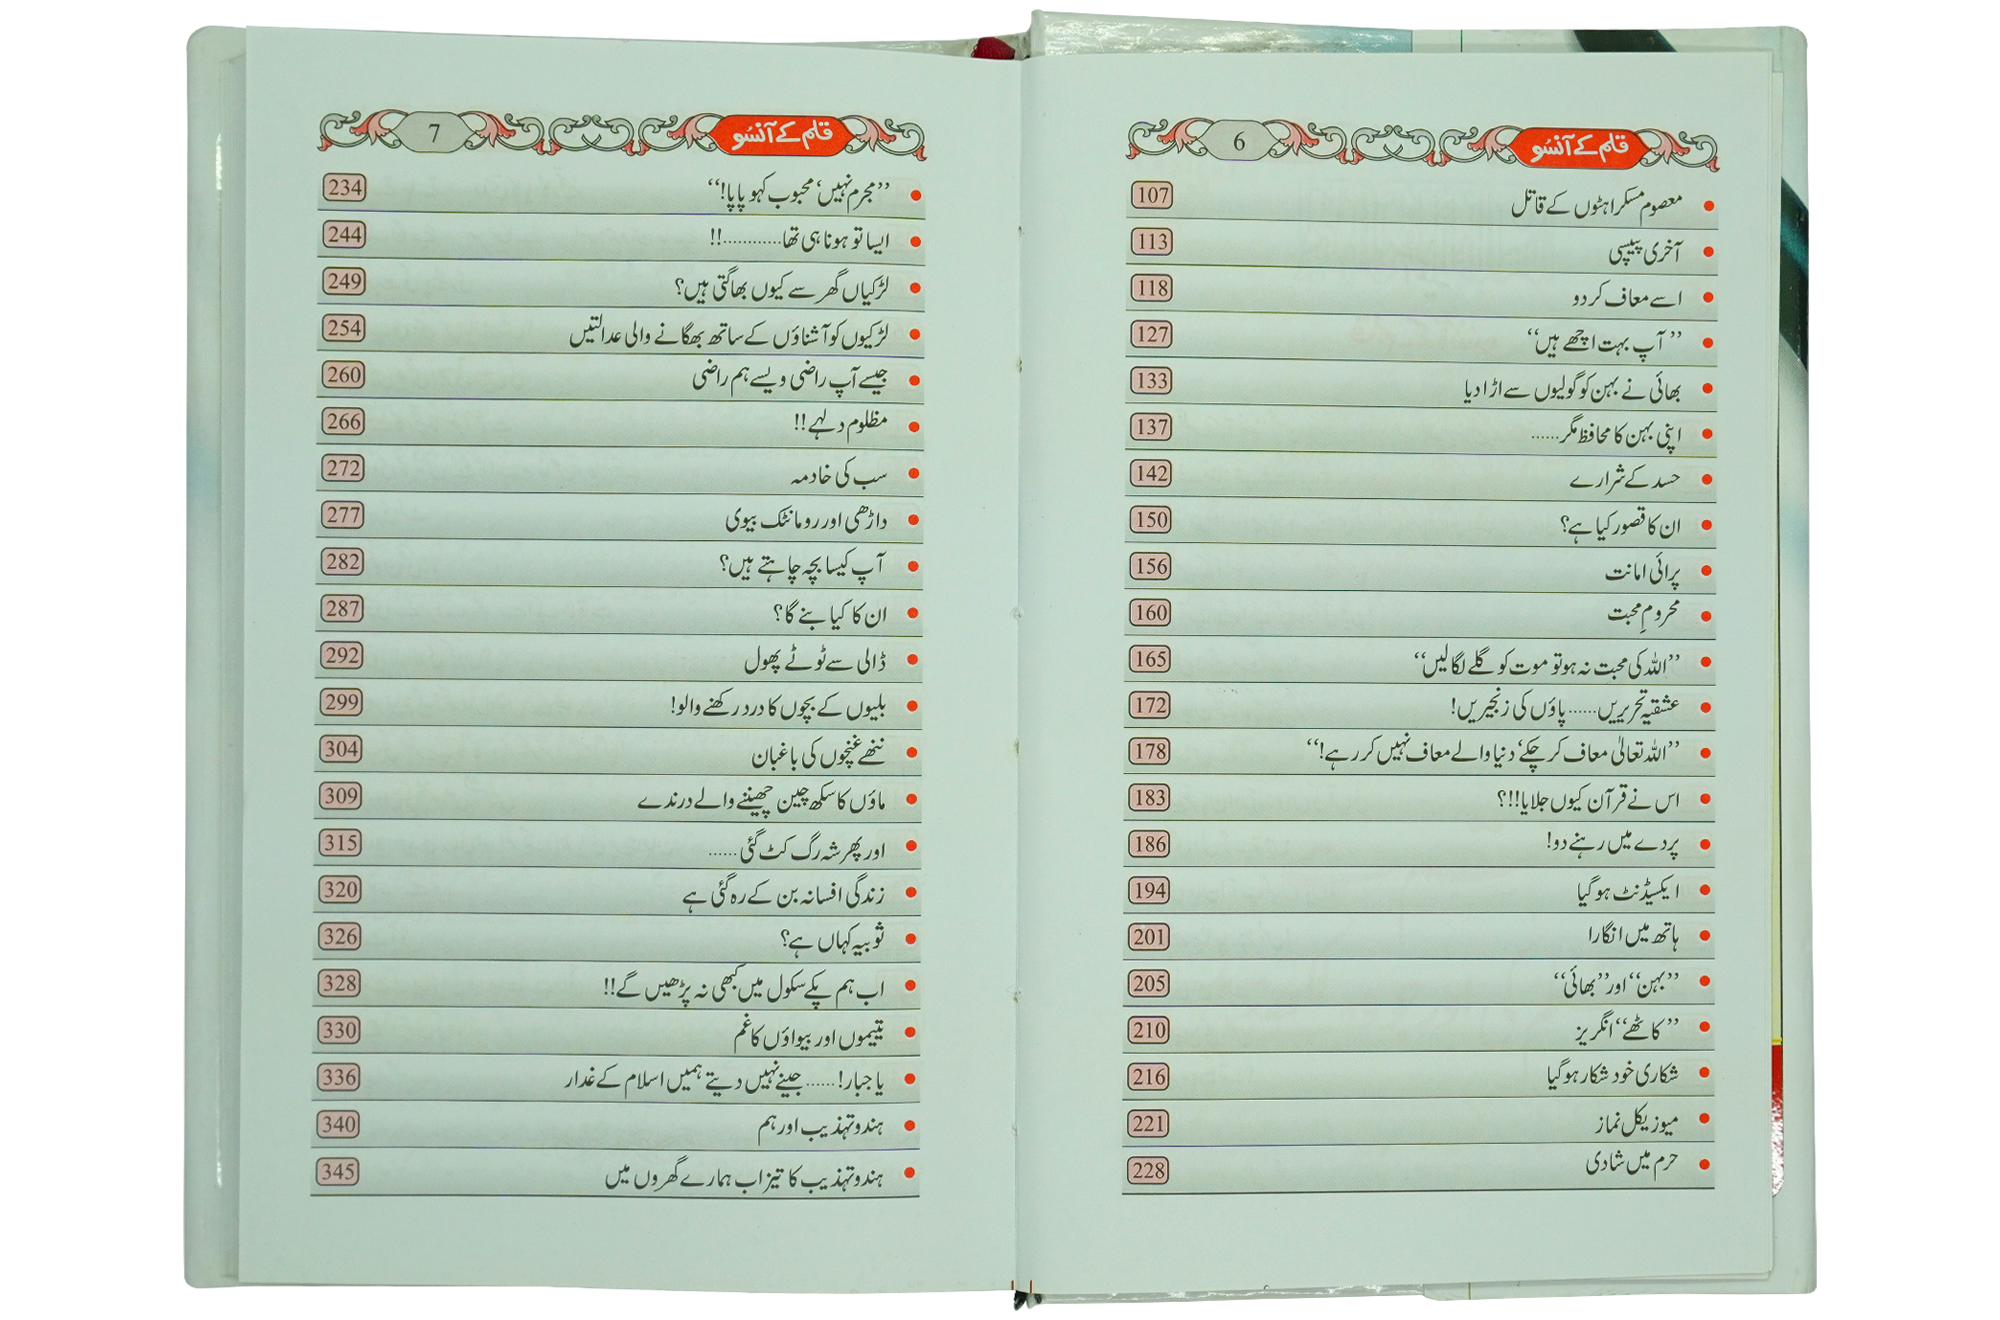 قلم کے آنسو 6
معصوم مسکراہٹوں کے قاتل 107
آخری پیپسی 113
اسے معاف کر دو 118
’’آپ بہت اچھے ہیں‘‘ 127
بھائی نے بہن کو گولیوں سے اڑا دیا 133
اپنی بہن کا محافظ مگر...... 137
حسد کے شرارے 142
ان کا قصور کیا ہے؟ 150
پرائی امانت 156
محرومِ محبت 160
’’اللہ کی محبت نہ ہو تو موت کو گلے لگا لیں‘‘ 165
عشقیہ تحریریں...... پاؤں کی زنجیریں! 172
’’اللہ تعالیٰ معاف کر چکے‘ دنیا والے معاف نہیں کر رہے!‘‘ 178
اس نے قرآن کیوں جلایا!!؟ 183
پردے میں رہنے دو! 186
ایکسیڈنٹ ہو گیا 194
ہاتھ میں انگارا 201
’’بہن‘‘ اور ’’بھائی‘‘ 205
’’کاٹھے‘‘ انگریز 210
شکاری خود شکار ہو گیا 216
میوزیکل نماز 221
حرم میں شادی 228
قلم کے آنسو 7
’’مجرم نہیں‘ محبوب کہو پاپا!‘‘ 234
ایسا تو ہونا ہی تھا............!! 244
لڑکیاں گھر سے کیوں بھاگتی ہیں؟ 249
لڑکیوں کو آشناؤں کے ساتھ بھگانے والی عدالتیں 254
جیسے آپ راضی ویسے ہم راضی 260
مظلوم دلہے!! 266
سب کی خادمہ 272
داڑھی اور رومانٹک بیوی 277
آپ کیسا بچہ چاہتے ہیں؟ 282
ان کا کیا بنے گا؟ 287
ڈالی سے ٹوٹے پھول 292
بلیوں کے بچوں کا درد رکھنے والو! 299
ننھے غنچوں کی باغبان 304
ماؤں کا سکھ چین چھیننے والے درندے 309
اور پھر شہ رگ کٹ گئی...... 315
زندگی افسانہ بن کے رہ گئی ہے 320
ثوبیہ کہاں ہے؟ 326
اب ہم پکے سکول میں کبھی نہ پڑھیں گے!! 328
یتیموں اور بیواؤں کا غم 330
یا جبار!...... جینے نہیں دیتے ہمیں اسلام کے غدار 336
ہندو تہذیب اور ہم 340
ہندو تہذیب کا تیزاب ہمارے گھروں میں 345